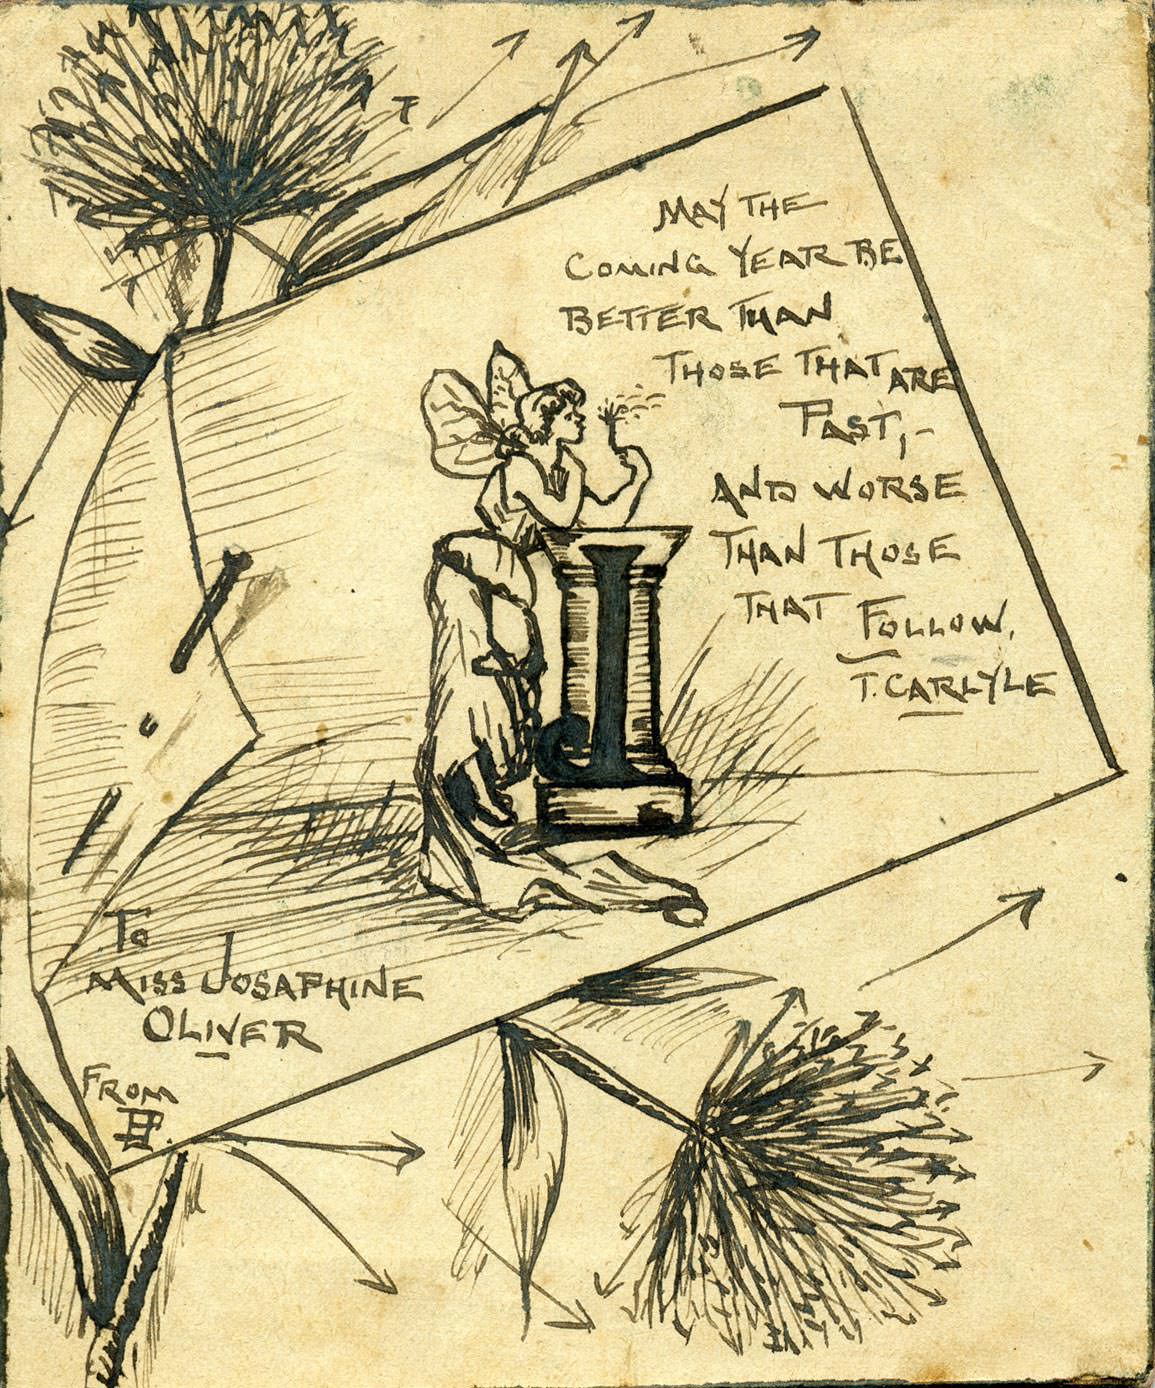 MAY THE
COMING YEAR BE
BETTER THAN
THOSE THAT ARE
PAST,-
AND WORSE
THAN THOSE
THAT FOLLOW.
T. CARLYLE
J
TO
MISS JOSAPHINE
OLIVER
FROM